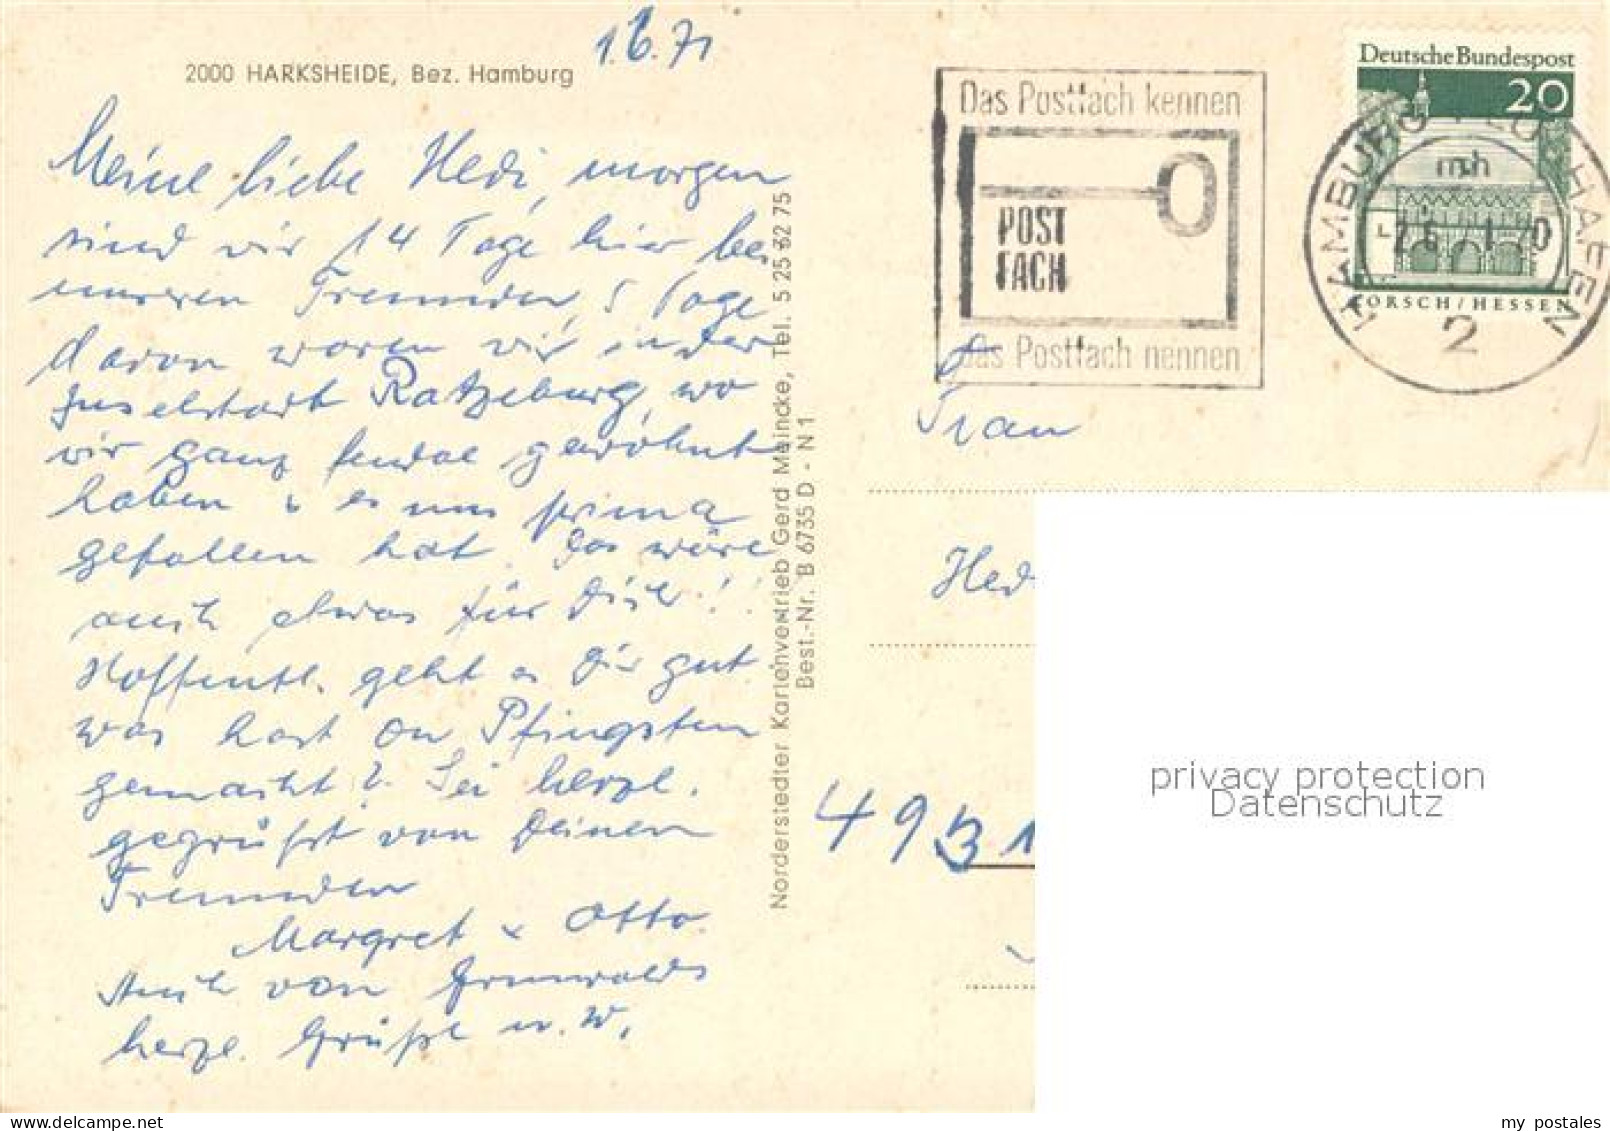 1.6.71
2000 HARKSHEIDE, Bez. Hamburg
Meine liebe Hedi, morgen
sind wir 14 Tage hier bei
unseren Freunden, 5 Tage
davon waren wir in der
Inselstadt Ratzeburg, wo
wir ganz feudal gewohnt
haben u es uns prima
gefallen hat. Das wäre
auch etwas für Dich!!
Hoffentl. geht es Dir gut.
was hast Du Pfingsten
gemacht? Sei herzl.
gegrüßt von Deinen
Freunden
Margret u Otto.
Auch von Grunwalds
herzl. Grüße u. W.
Norderstedter Kartenvertrieb Gerd Meincke, Tel. 5 25 32 75
Best.-Nr. B 6735 D - N 1
Das Postfach kennen
POST
FACH
Das Postfach nennen
Deutsche Bundespost
20
LORSCH/HESSEN
HAMBURG FLUGHAFEN
2
Frau
Hedi
4931
privacy protection
Datenschutz
my postales